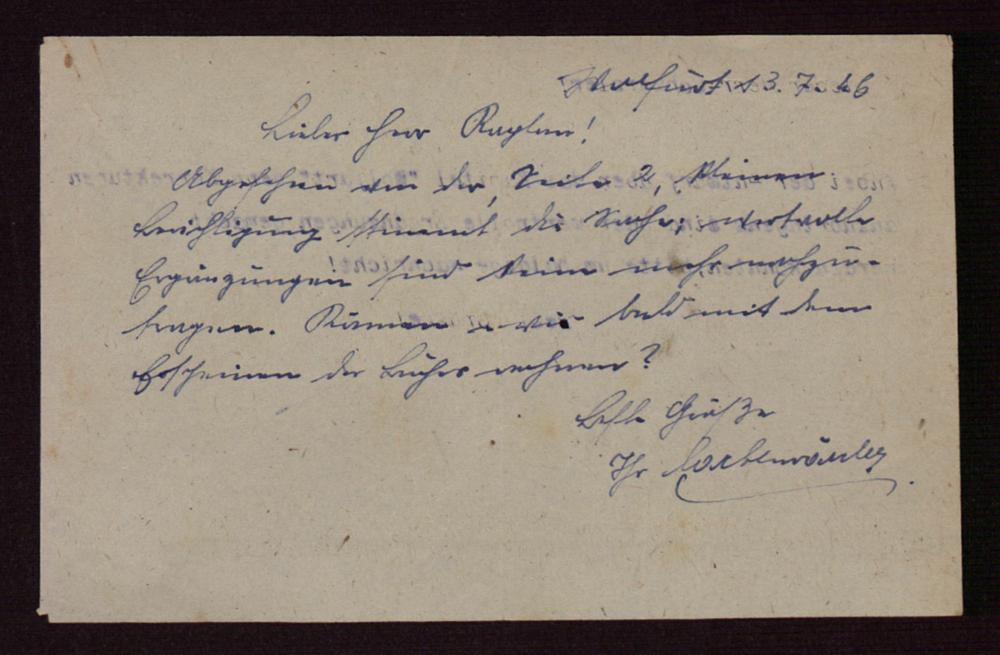 Wolfurt 13. 7. 46
Lieber Herr Kaplan!
Abgesehen von der, Seite 2, kleinen
Berichtigung stimmt die Sache; wertvolle
Ergänzungen sind keine mehr nachzu-
tragen. Können wir bald mit dem
Erscheinen des Buches rechnen?
Beste Grüße
Ihr